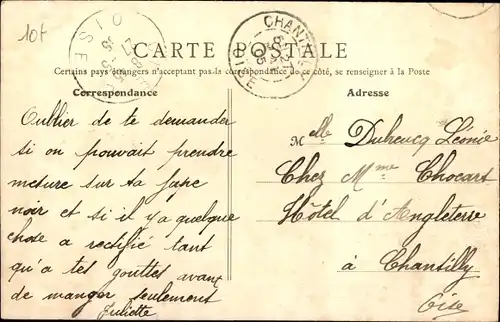 10f
OISE
CHANTILLY
OISE
CARTE POSTALE
Certains pays étrangers n'acceptant pas la correspondance de ce côté, se renseigner à la Poste
Correspondance
Oublier de te demander
si on pouvait prendre
mesure sur ta jupe
noir et si il y a quelque
chose a rectifié tant
qu'a tes gouttes avant
de manger seulement
Juliette
Adresse
Melle Duheucq Léonie
Chez Mme Chocart
Hôtel d'Angleterre
à Chantilly
Oise